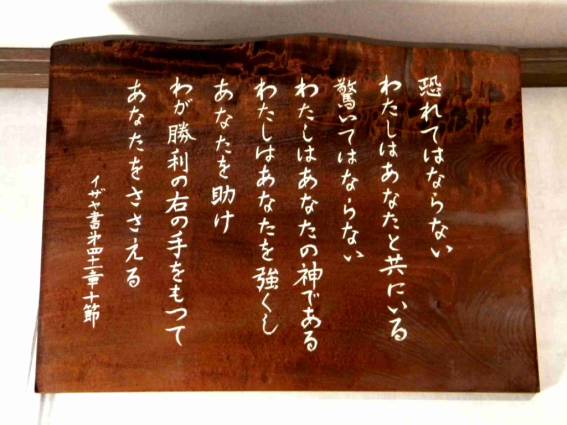 恐れてはならない
わたしはあなたと共にいる
驚いてはならない
わたしはあなたの神である
わたしはあなたを強くし
あなたを助け
わが勝利の右の手をもつて
あなたをささえる
イザヤ書第四十一章十節